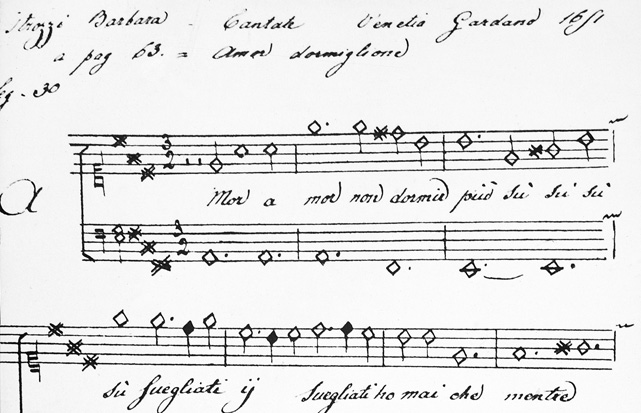 Strozzi Barbara - Cantate Venetia Gardano 1651
a pag 63. = Amor dormiglione
3
2
A
Mor a mor non dormir più sù sù sù
3
2
sù suegliati ij suegliati ho mai che mentre